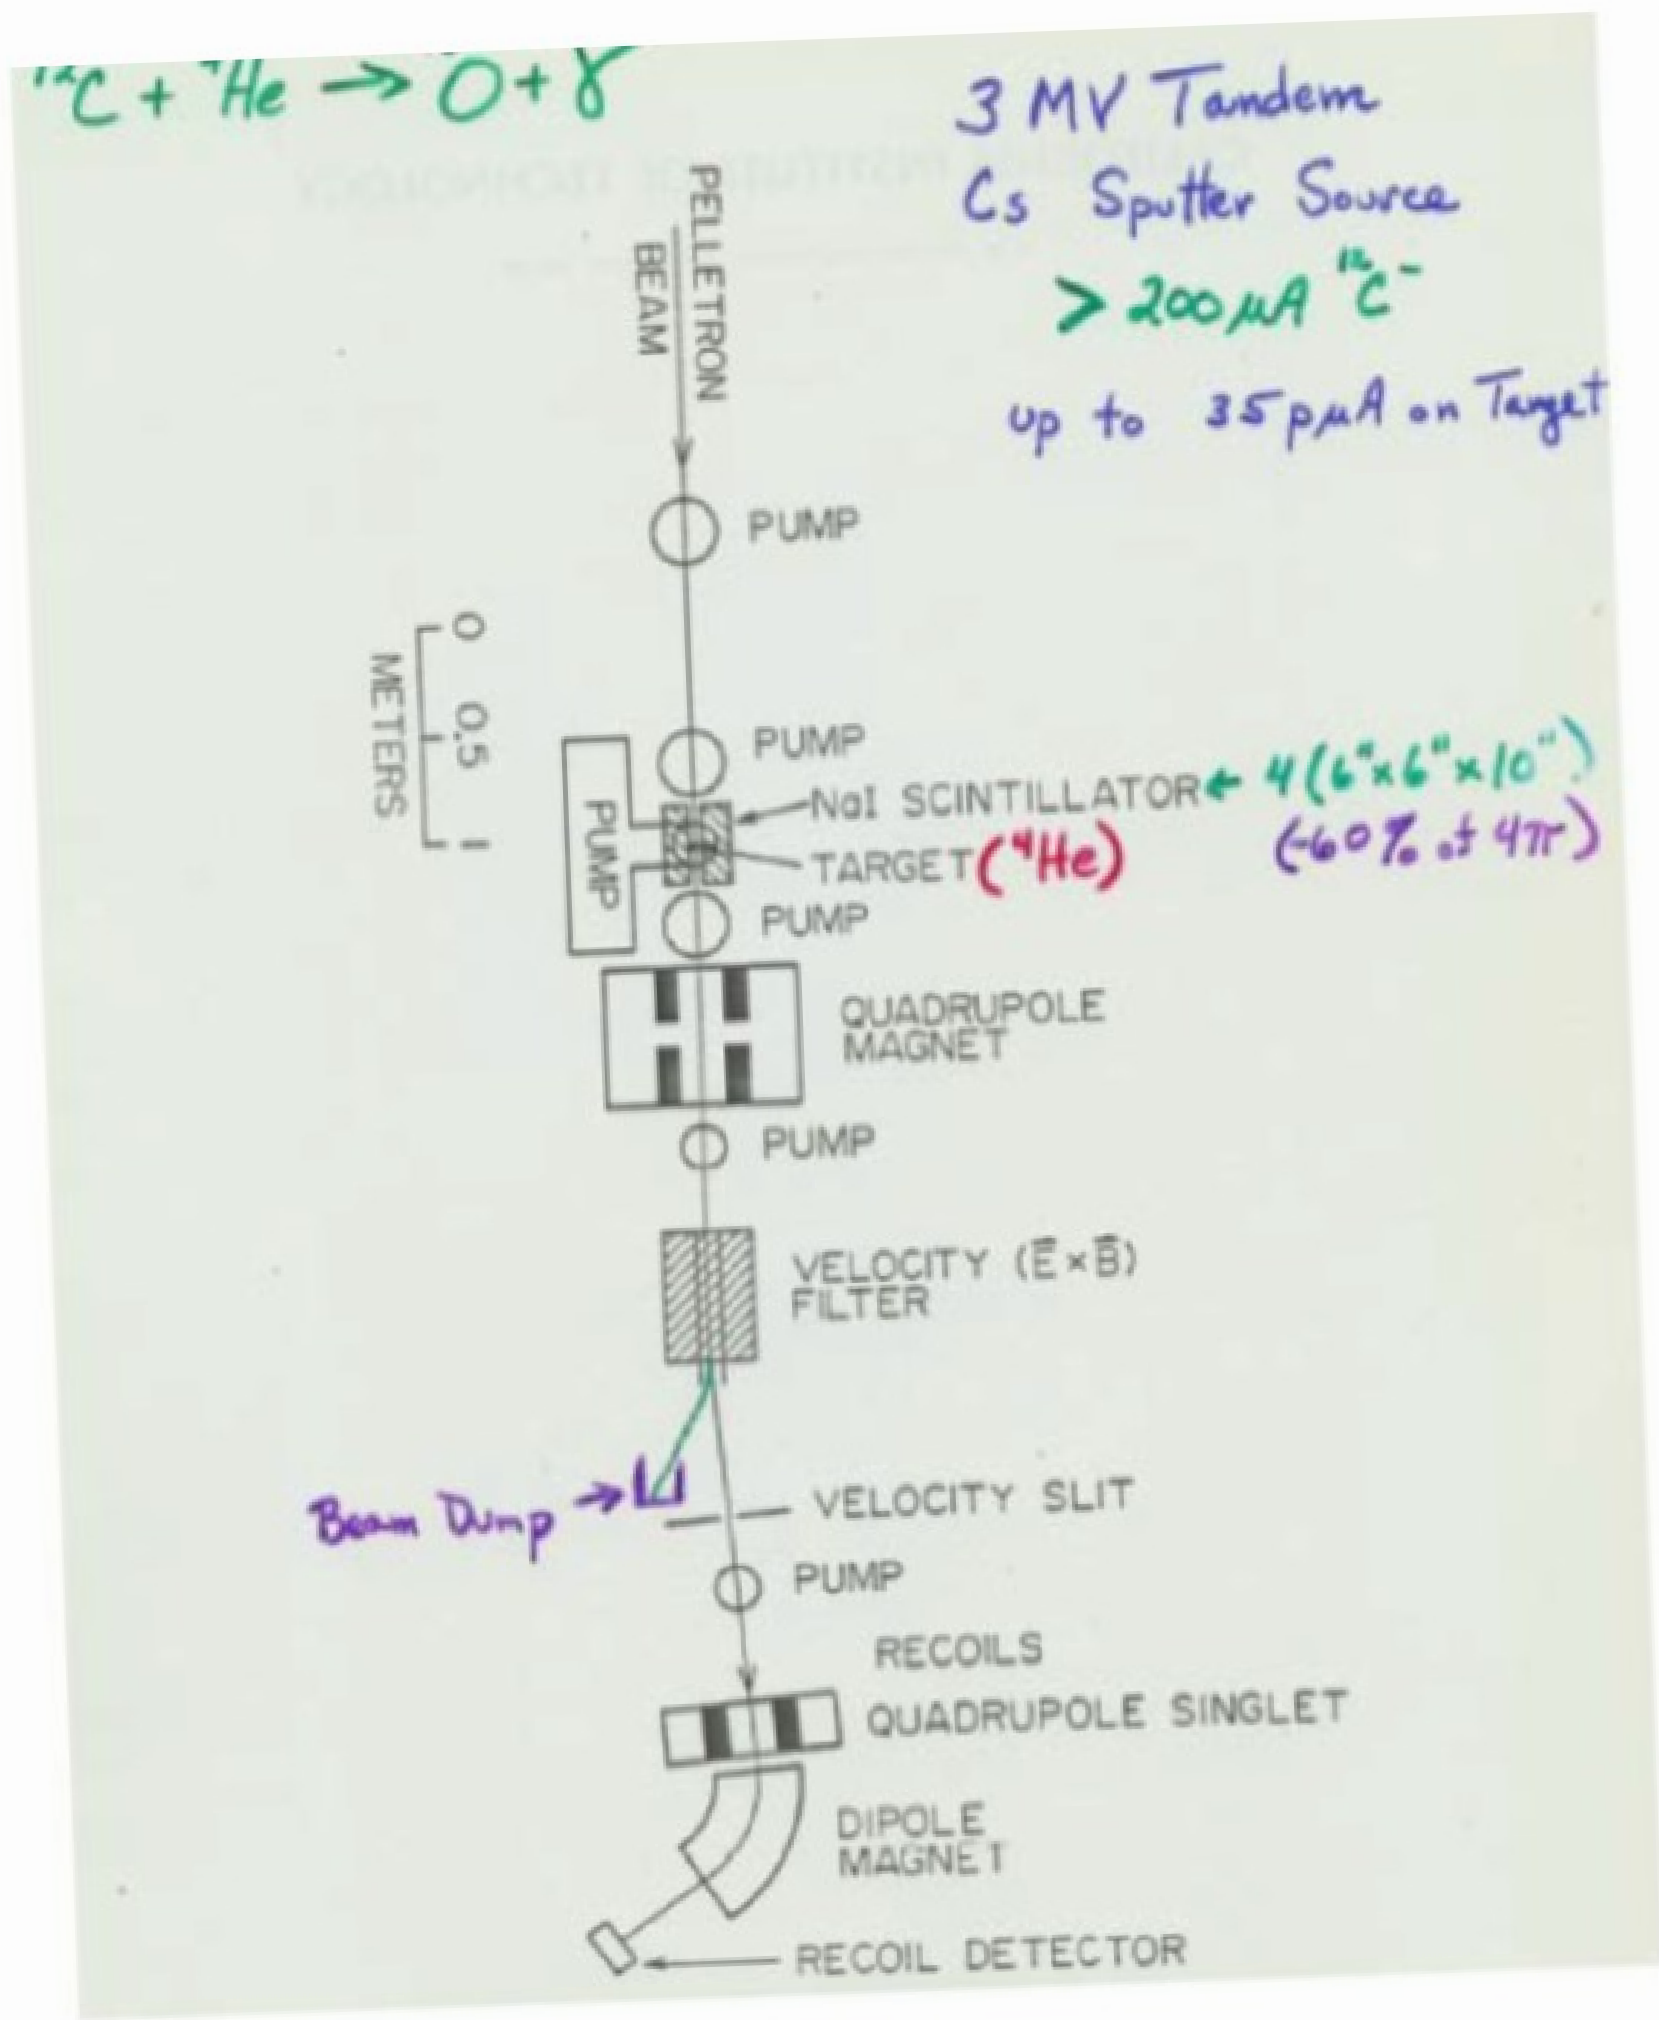 ¹²C + ⁴He → O + γ
3 MV Tandem
Cs Sputter Source
> 200 μA ¹²C⁻
up to 35 pμA on Target
PELLETRON
BEAM
PUMP
0 0.5 1
METERS
PUMP
NaI SCINTILLATOR ← 4(6"x6"x10")
(~60% of 4π)
TARGET (⁴He)
PUMP
PUMP
QUADRUPOLE
MAGNET
PUMP
VELOCITY (E̅×B̅)
FILTER
Beam Dump →
VELOCITY SLIT
PUMP
RECOILS
QUADRUPOLE SINGLET
DIPOLE
MAGNET
RECOIL DETECTOR